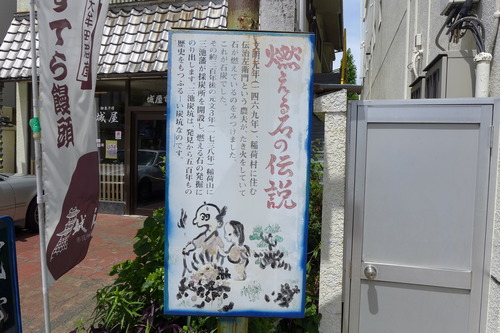 燃える石の伝説
文明元年(一四六九年)、稲荷村に住む
伝治左衛門という農夫が、たき火をしていて
石が燃えているのをみつけました。
これが石炭でした。
その約二百年後の元文3年(一七三八年)稲荷山に
三池藩が採炭所を開設し、燃える石の発掘に
のり出します。三池炭坑は、発見から五百年もの
歴史をもつふる〜い炭坑なのです。
すてら饅頭
城屋
城屋